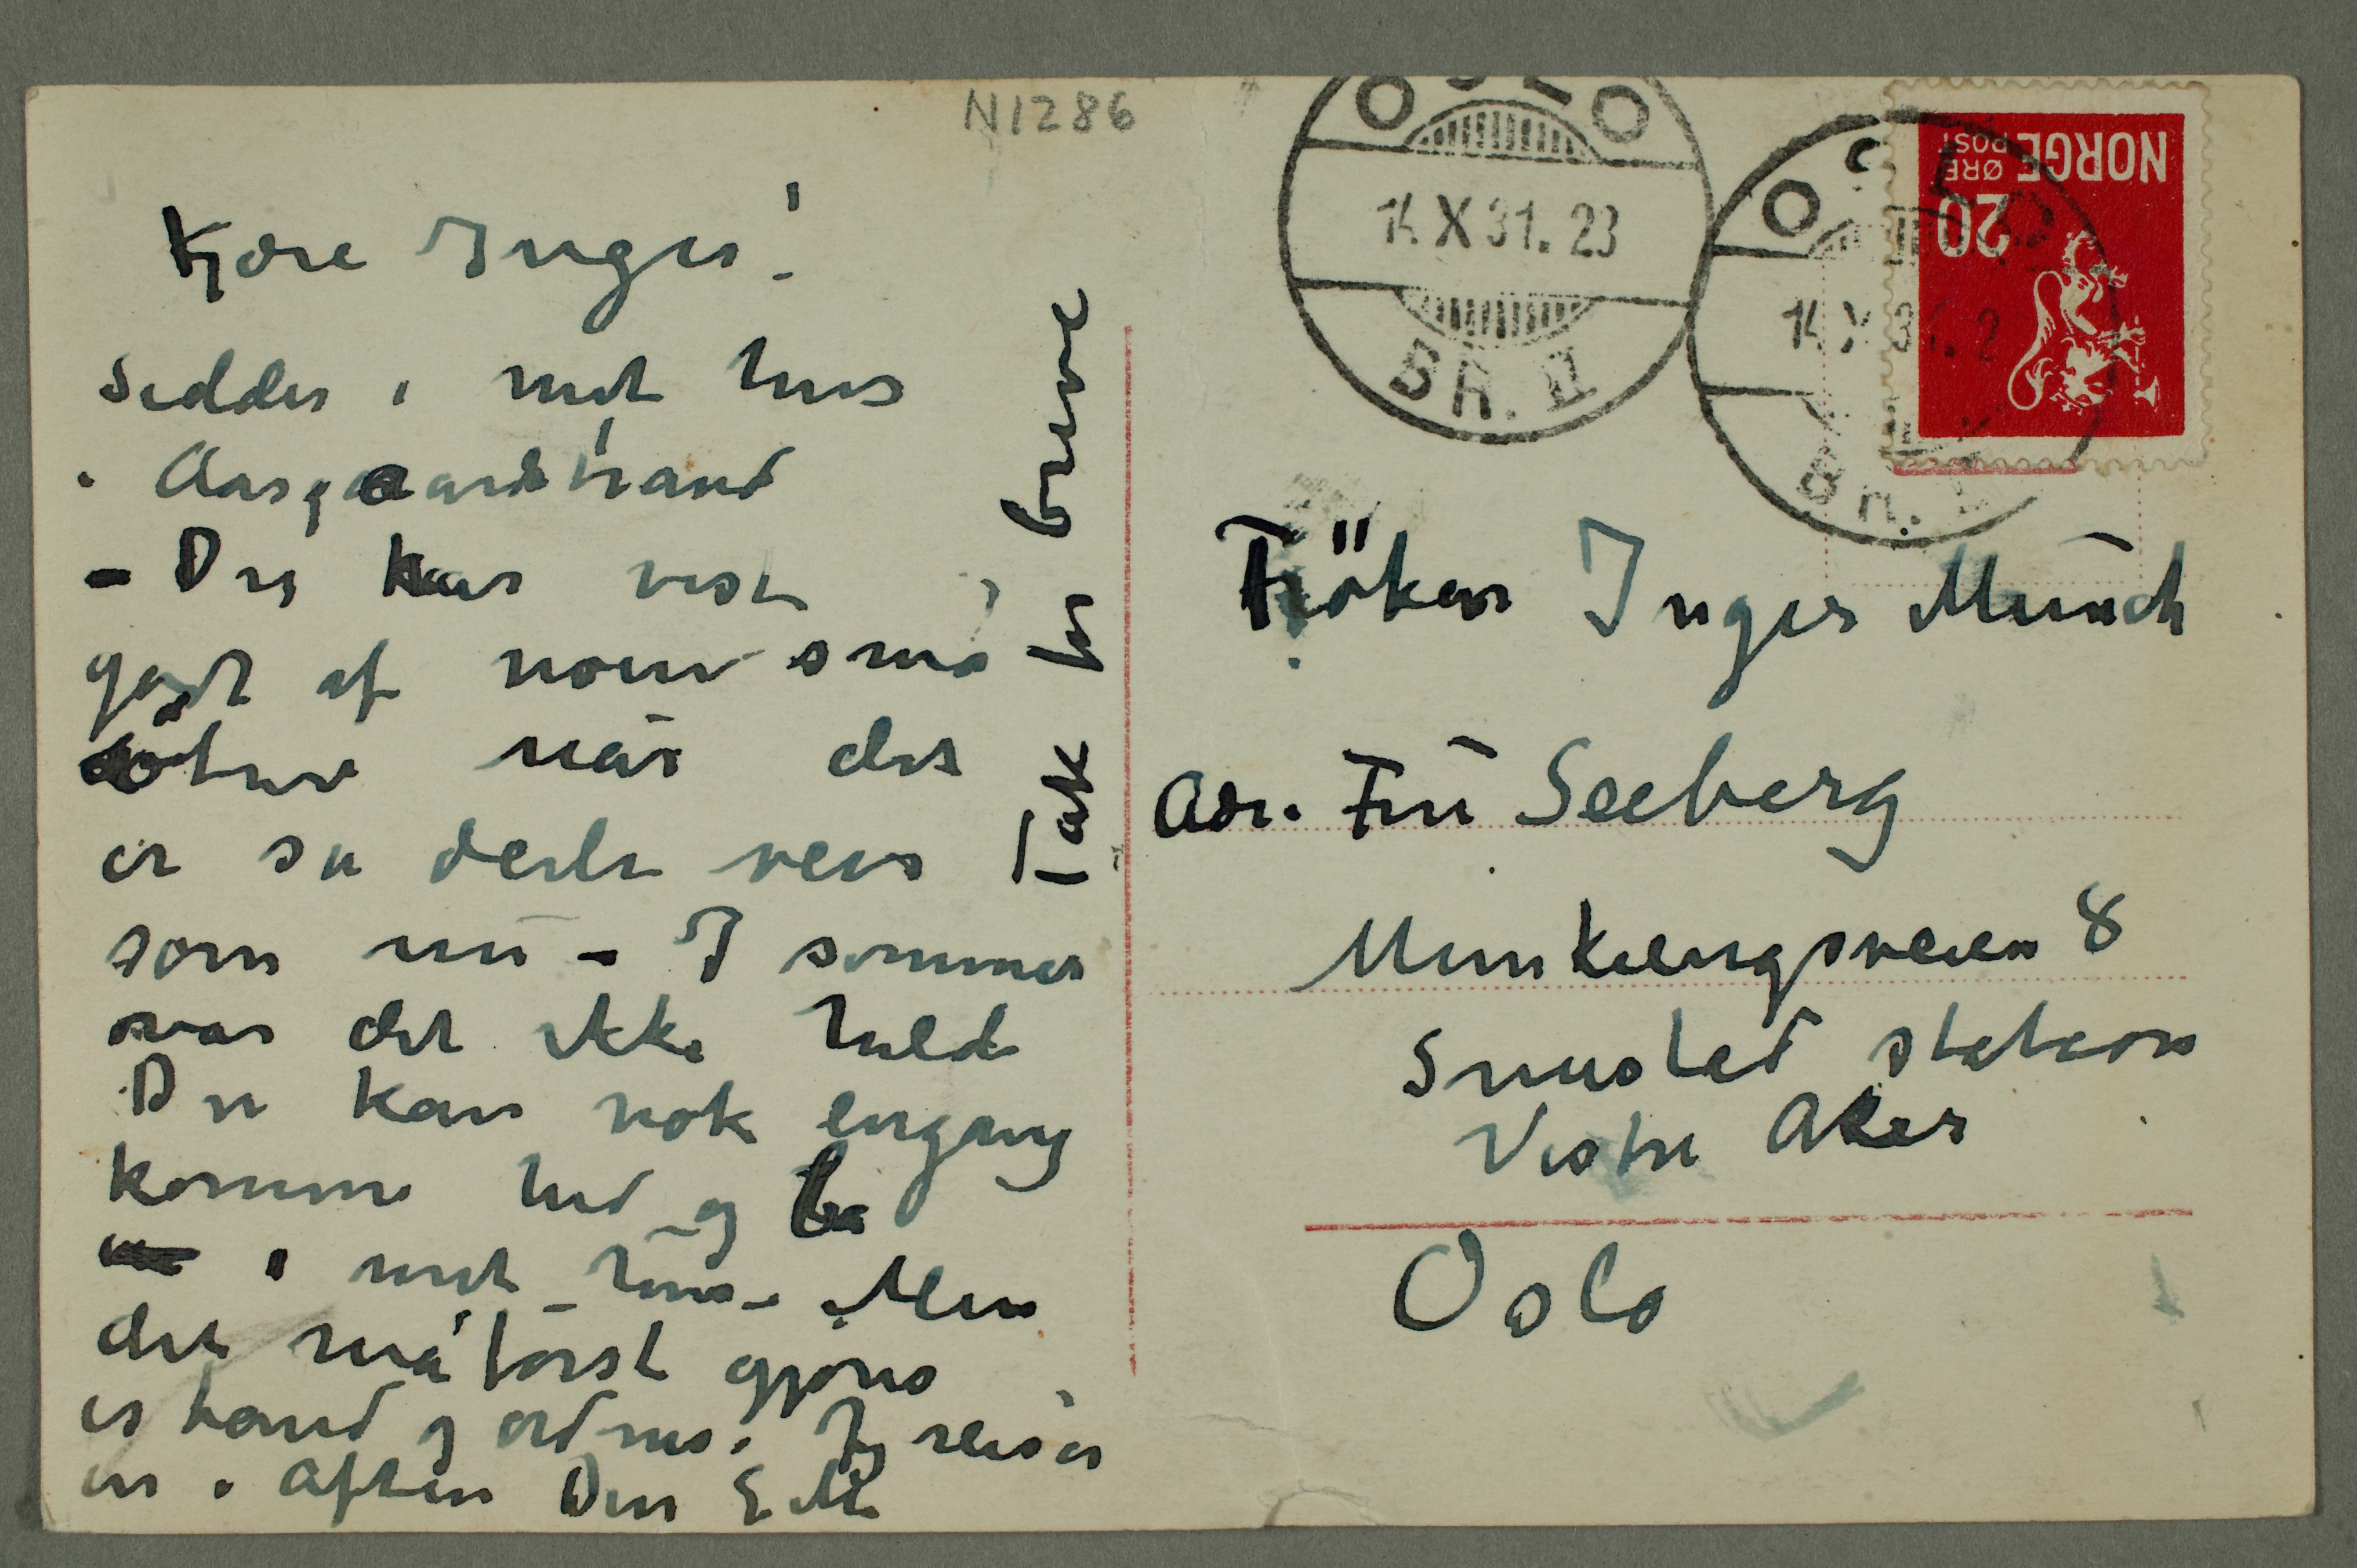 N1286
Kjære Inger!
Sidder i mit hus
i Aasgaardstrand
– Du har vist
godt af noen små
ture når det
er så deilt veir
som nu – I sommer
var det ikke heldi
Du kan nok engang
komme hid og bo
i mit hus – Men
det må først gjøres
istand og ordnes. Jeg reiser
in i aften Din EM
Tak for brevet
OSLO
14 X 31. 23
BR. II
OSLO
14 X 31. 2
BR. II
NORGE
POST
20 ØRE
Fröken Inger Munch
Adr. Fru Seeberg
Munkengsveien 8
Smestad station
Vestre Aker
Oslo